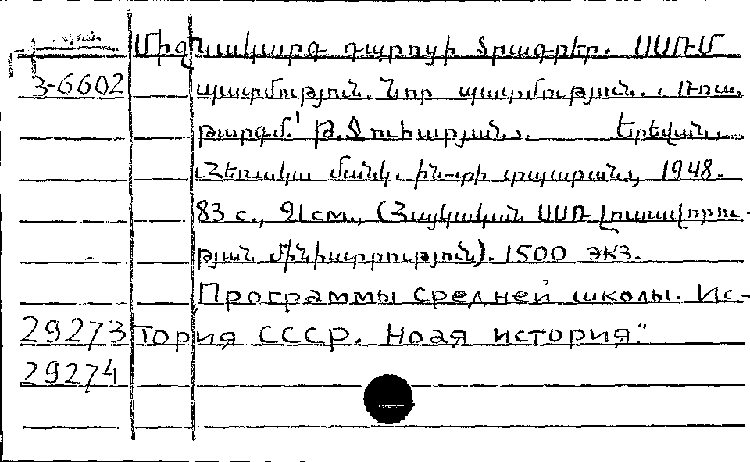 Միջնակարգ դպրոցի ծրագրեր. ՍՍՌՄ
3-6602 պատմություն. Նոր պատմություն. Ռուս.
թարգմ.՝ Թ. Ջուհարյան. Երեվան,
Հեռակա մանկ. ին-տի տպարան, 1948.
83 с., 21см., (Հայկական ՍՍՌ լուսավորու-
թյան մինիստրություն). 1500 экз.
Программы средней школы. Ис-
29273 тория СССР. Ноая история."
29274